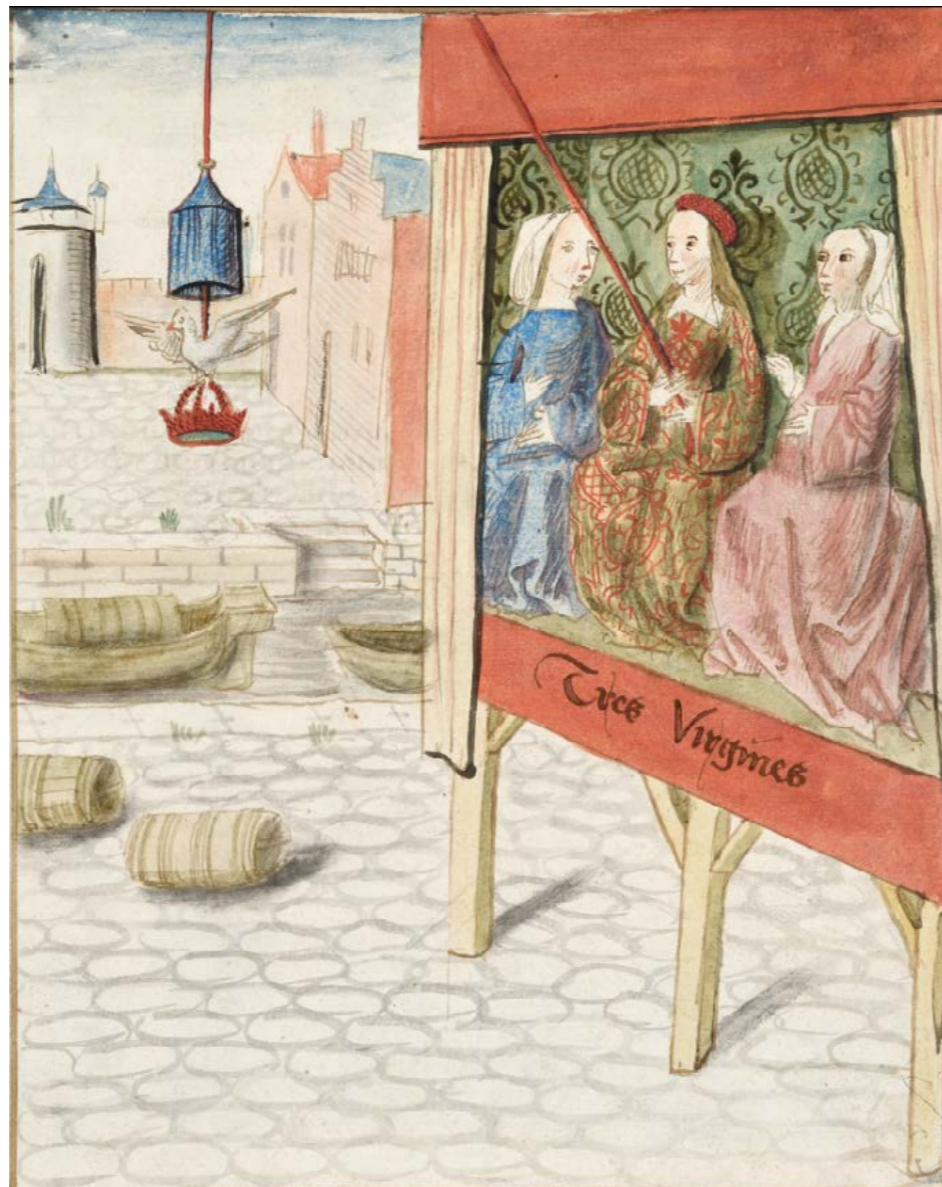 Tres Virgines